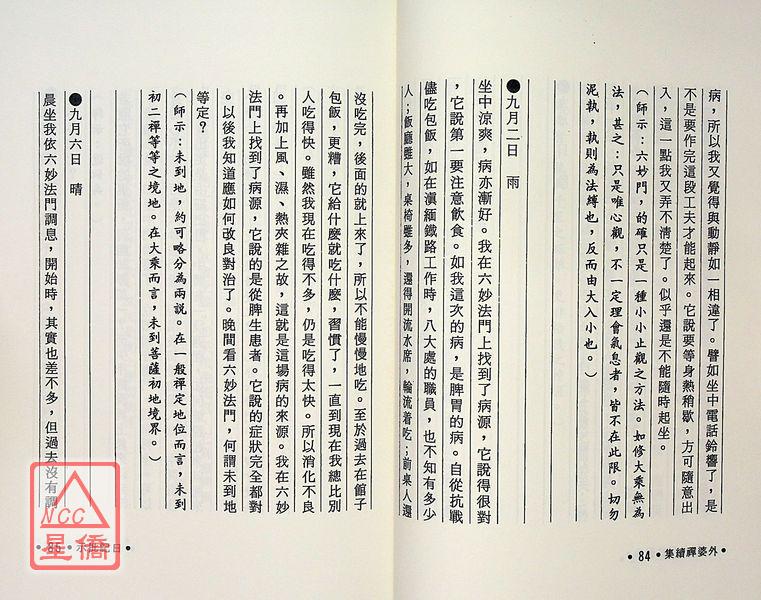 病，所以我又覺得與動靜如一相違了。譬如坐中電話鈴響了，是
不是要作完這段工夫才能起來。它說要等身熱稍歇，方可隨意出
入，這一點我又弄不清楚了。似乎還是不能隨時起坐。
（師示：六妙門，的確只是一種小小止觀之方法。如修大乘無為
法，甚之：只是唯心觀，不一定理會氣息者，皆不在此限。切勿
泥執，執則為法縛也，反而由大入小也。）
●九月二日　雨
坐中涼爽，病亦漸好。我在六妙法門上找到了病源，它說得很對
，它說第一要注意飲食。如我這次的病，是脾胃的病。自從抗戰
儘吃包飯，如在滇緬鐵路工作時，八大處的職員，也不知有多少
人；飯廳雖大，桌椅雖多，還得開流水席，輪流着吃；前桌人還
84•外婆禪續集•
沒吃完，後面的就上來了，所以不能慢慢地吃。至於過去在館子
包飯，更糟，它給什麼就吃什麼，習慣了，一直到現在我總比別
人吃得快。雖然我現在吃得不多，仍是吃得太快。所以消化不良
。再加上風、濕、熱夾雜之故，這就是這場病的來源。我在六妙
法門上找到了病源，它說的是從脾生患者。它說的症狀完全都對
。以後我知道應如何改良對治了。晚間看六妙法門，何謂未到地
等定？
（師示：未到地，約可略分為兩說。在一般禪定地位而言，未到
初二禪等等之境地。在大乘而言，未到菩薩初地境界。）
●九月六日　晴
晨坐我依六妙法門調息，開始時，其實也差不多，但過去沒有調
•85•示批記日•
NCC
星僑